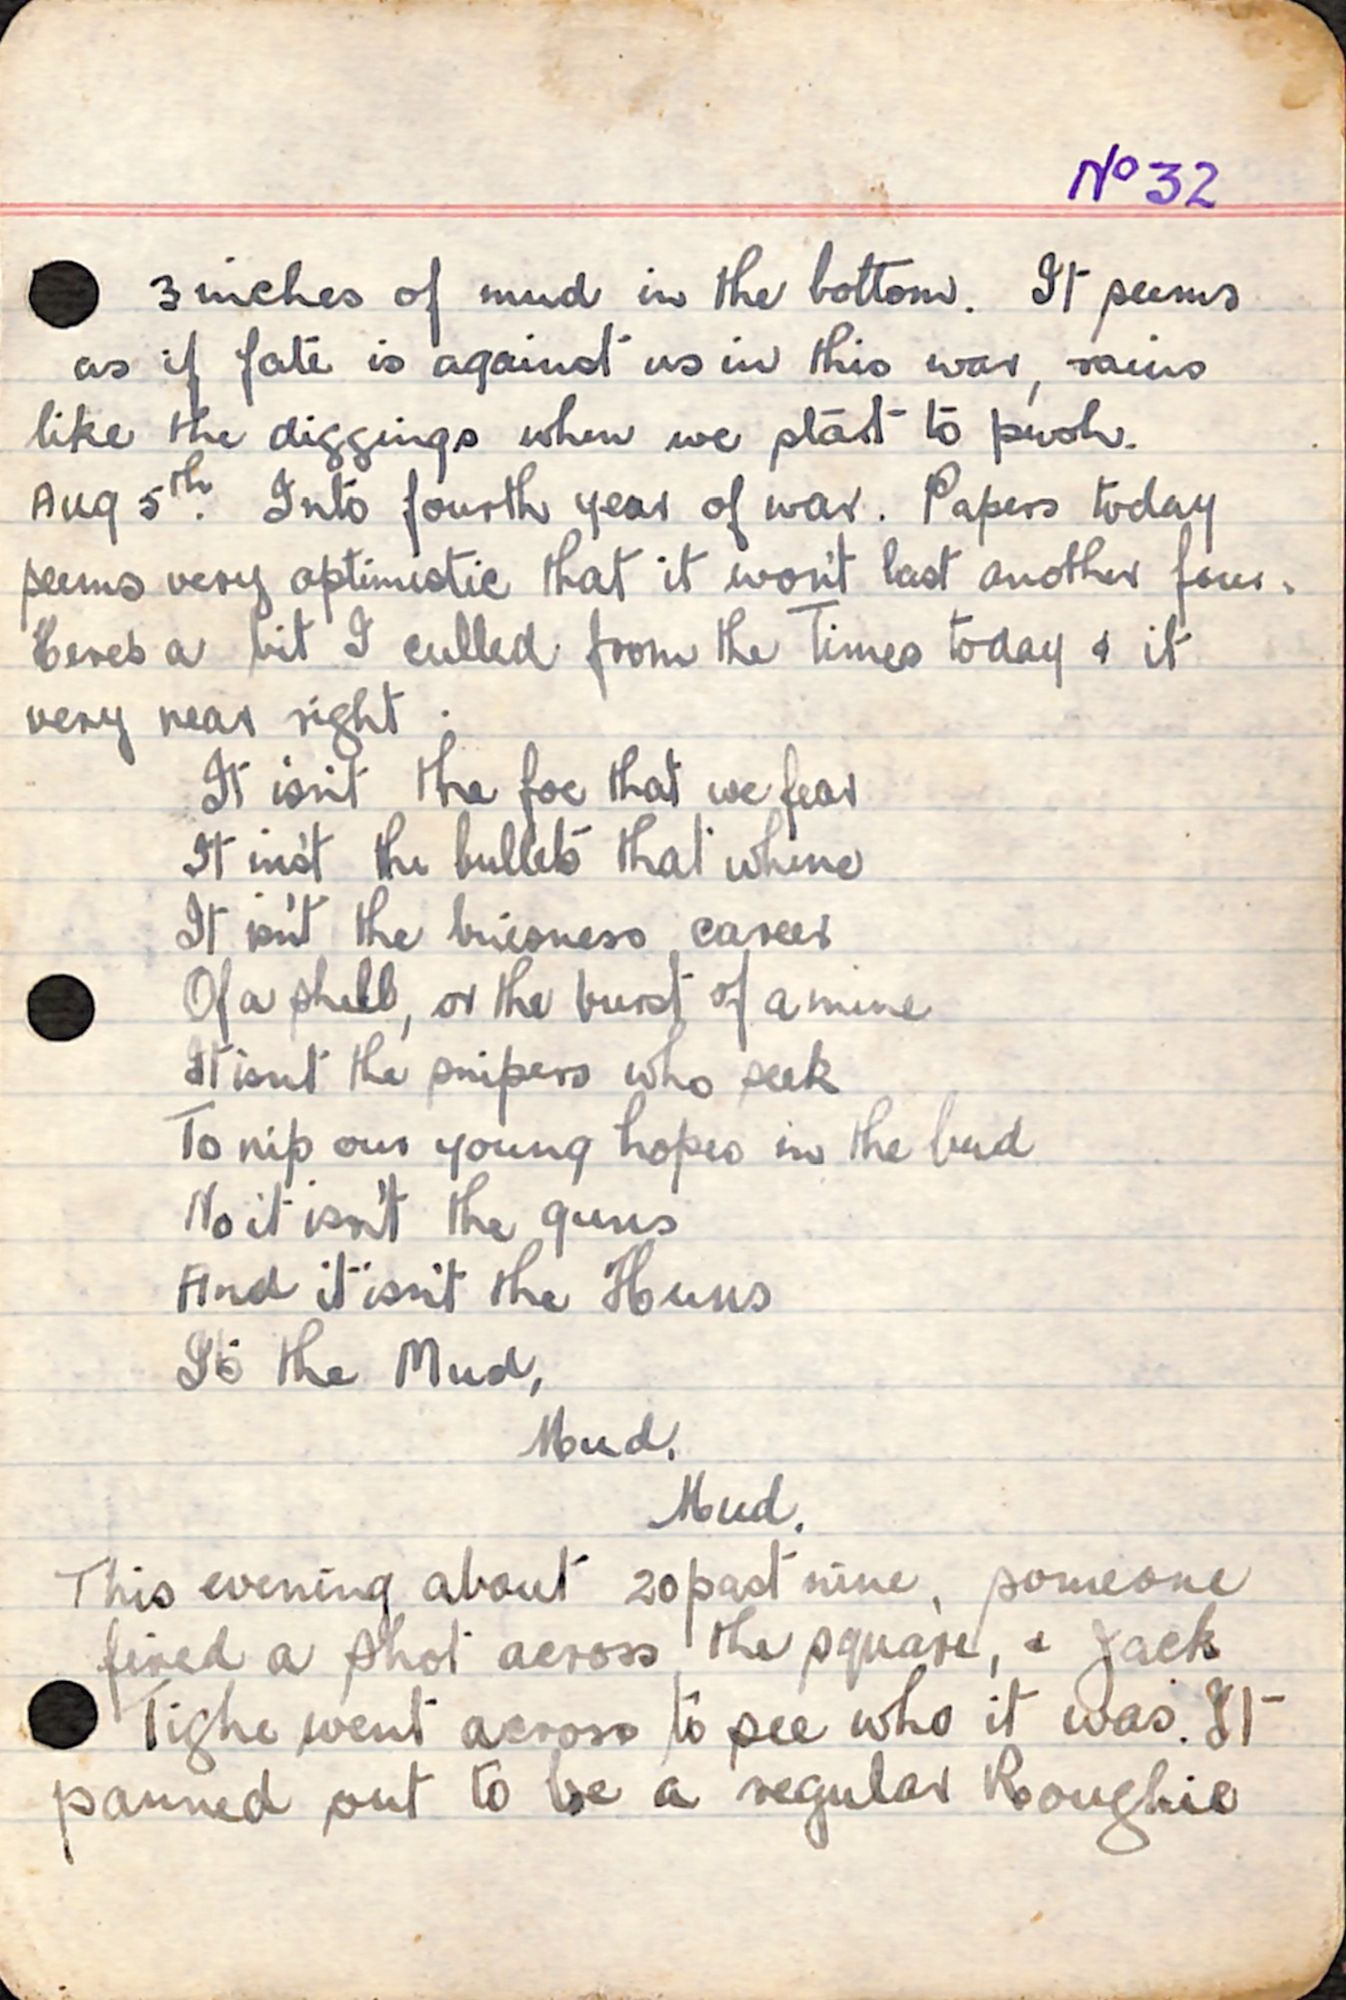 No 32
3 inches of mud in the bottom. It seems
as if fate is against us in this war, rains
like the diggings when we start to push.
Aug 5th. Into fourth year of war. Papers today
seems very optimistic that it won't last another four.
Heres a bit I culled from the Times today & it
very near right.
It isn't the foe that we fear
It isn't the bullets that whine
It isn't the buisness career
Of a shell, or the burst of a mine
It isnt the snipers who seek
To nip our young hopes in the bud
No it isn't the guns
And it isn't the Huns
Its the Mud,
Mud.
Mud.
This evening about 20 past nine, someone
fired a shot across the square, & Jack
Tighe went across to see who it was. It
panned out to be a regular Roughie